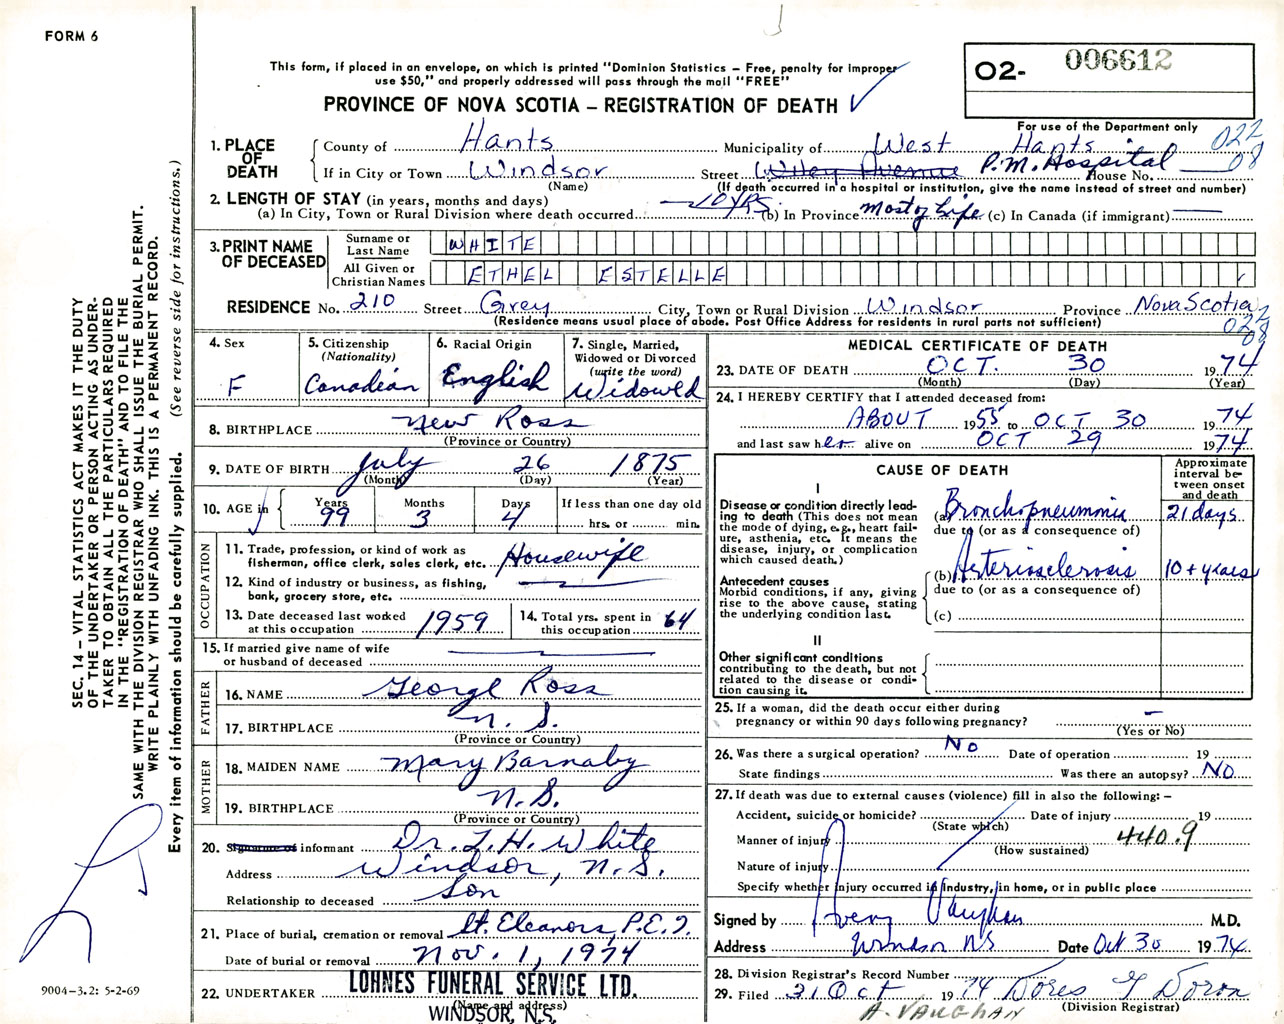 FORM 6
This form, if placed in an envelope, on which is printed "Dominion Statistics – Free, penalty for improper
use $50," and properly addressed will pass through the mail "FREE"
PROVINCE OF NOVA SCOTIA – REGISTRATION OF DEATH
O2- 006612
For use of the Department only
022
08
1. PLACE OF DEATH
County of Hants Municipality of West Hants
If in City or Town Windsor Street Wiley Avenue P.M. Hospital House No.
(Name) (If death occurred in a hospital or institution, give the name instead of street and number)
2. LENGTH OF STAY (in years, months and days)
(a) In City, Town or Rural Division where death occurred 10 YRS (b) In Province Most of Life (c) In Canada (if immigrant)
3. PRINT NAME OF DECEASED
Surname or Last Name WHITE
All Given or Christian Names ETHEL ESTELLE
RESIDENCE No. 210 Street Grey City, Town or Rural Division Windsor Province Nova Scotia
(Residence means usual place of abode. Post Office Address for residents in rural parts not sufficient)
022
08
4. Sex F
5. Citizenship (Nationality) Canadian
6. Racial Origin English
7. Single, Married, Widowed or Divorced (write the word) Widowed
8. BIRTHPLACE New Ross
(Province or Country)
9. DATE OF BIRTH July 26 1875
(Month) (Day) (Year)
10. AGE in Years 99 Months 3 Days 4 If less than one day old hrs. or min.
OCCUPATION
11. Trade, profession, or kind of work as fisherman, office clerk, sales clerk, etc. Housewife
12. Kind of industry or business, as fishing, bank, grocery store, etc.
13. Date deceased last worked at this occupation 1959
14. Total yrs. spent in this occupation 64
15. If married give name of wife or husband of deceased
FATHER
16. NAME George Ross
17. BIRTHPLACE N. S.
(Province or Country)
MOTHER
18. MAIDEN NAME Mary Barnaby
19. BIRTHPLACE N.S.
(Province or Country)
20. Signature of informant Dr. L. H. White
Address Windsor, N.S.
Relationship to deceased Son
21. Place of burial, cremation or removal St. Eleanors, P.E.I.
Date of burial or removal Nov. 1, 1974
22. UNDERTAKER LOHNES FUNERAL SERVICE LTD.
(Name and address)
WINDSOR, N.S.
MEDICAL CERTIFICATE OF DEATH
23. DATE OF DEATH OCT. 30 1974
(Month) (Day) (Year)
24. I HEREBY CERTIFY that I attended deceased from:
ABOUT 1955 to OCT 30 1974
and last saw her alive on OCT 29 1974
CAUSE OF DEATH
Approximate interval between onset and death
I
Disease or condition directly leading to death (This does not mean the mode of dying, e.g., heart failure, asthenia, etc. It means the disease, injury, or complication which caused death.)
(a) Bronchopneumonia 21 days
due to (or as a consequence of)
Antecedent causes
Morbid conditions, if any, giving rise to the above cause, stating the underlying condition last.
(b) Arteriosclerosis 10 + years
due to (or as a consequence of)
(c)
II
Other significant conditions contributing to the death, but not related to the disease or condition causing it.
25. If a woman, did the death occur either during pregnancy or within 90 days following pregnancy? –
(Yes or No)
26. Was there a surgical operation? NO Date of operation 19
State findings Was there an autopsy? NO
27. If death was due to external causes (violence) fill in also the following: –
Accident, suicide or homicide? Date of injury 19
(State which)
Manner of injury 440.9
(How sustained)
Nature of injury
Specify whether injury occurred in industry, in home, or in public place
Signed by Avery Vaughan M.D.
Address Windsor NS Date Oct 30 1974
28. Division Registrar's Record Number
29. Filed 31 Oct 1974 Dores Y Doron
(Division Registrar)
A. VAUGHAN
SEC. 14 – VITAL STATISTICS ACT MAKES IT THE DUTY
OF THE UNDERTAKER OR PERSON ACTING AS UNDER-
TAKER TO OBTAIN ALL THE PARTICULARS REQUIRED
IN THE "REGISTRATION OF DEATH" AND TO FILE THE
SAME WITH THE DIVISION REGISTRAR WHO SHALL ISSUE THE BURIAL PERMIT.
WRITE PLAINLY WITH UNFADING INK. THIS IS A PERMANENT RECORD.
Every item of information should be carefully supplied. (See reverse side for instructions.)
9004-3.2: 5-2-69